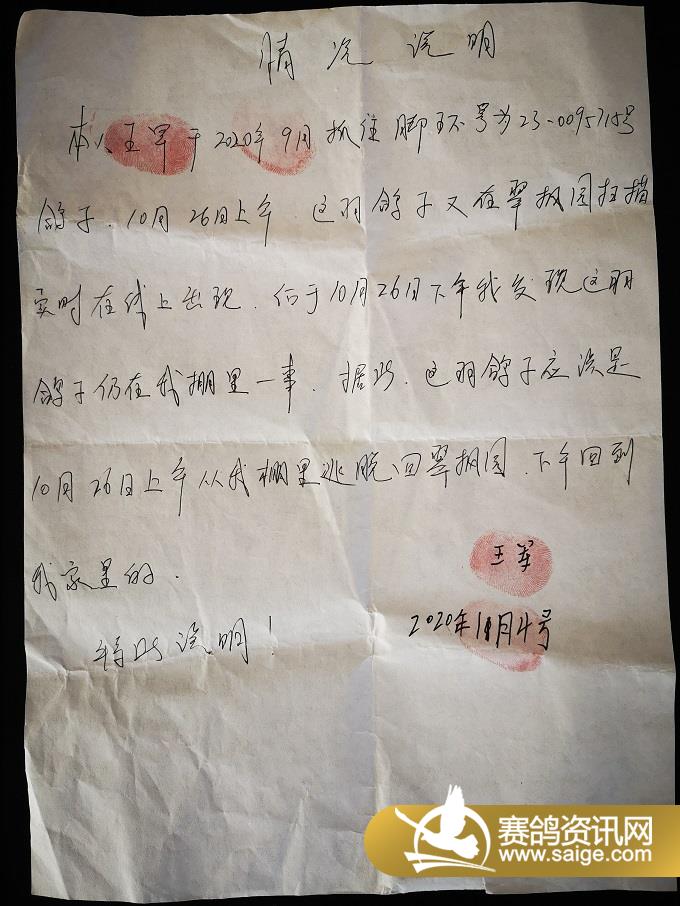 情况说明
本人王军于2020年9月抓住脚环号为23-0095715号
鸽子.10月26日上午.这羽鸽子又在翠枫园扫描
实时在线上出现.但于10月26日下午我发现这羽
鸽子仍在我棚里一事.据此.这羽鸽子应该是
10月26日上午从我棚里逃脱回翠枫园.下午回到
我家里的.
特此说明!
王军
2020年11月4号
赛鸽资讯网
www.saige.com